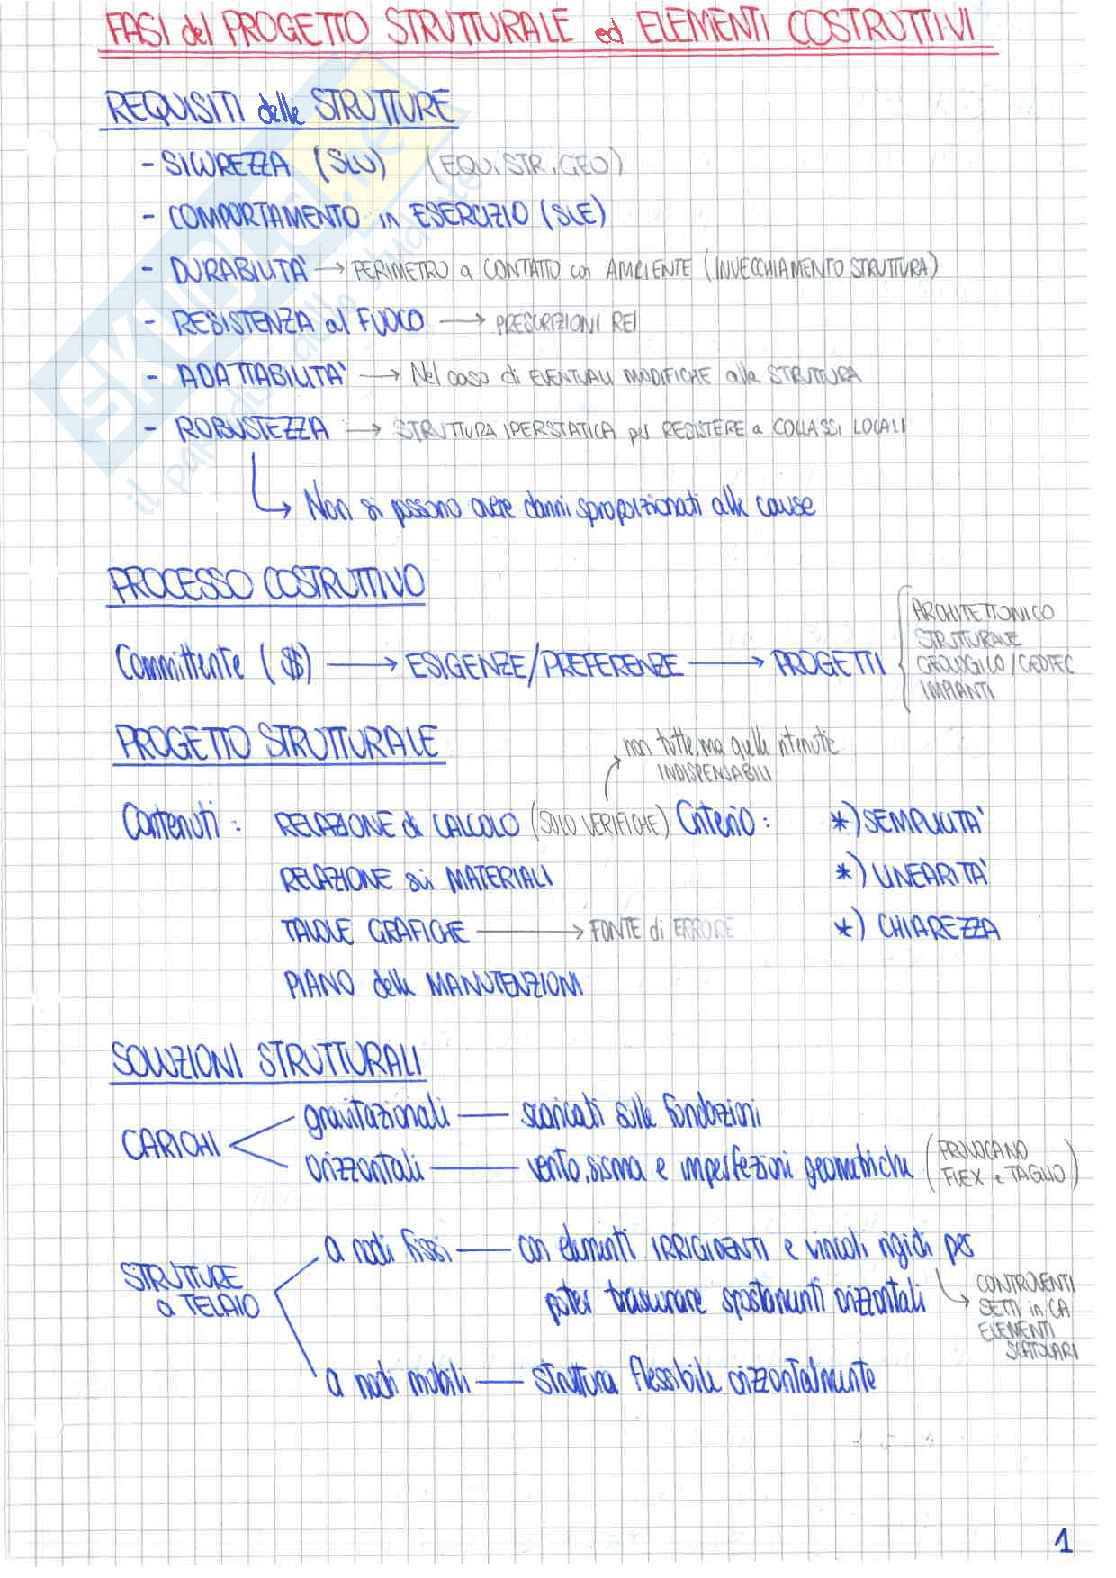 FASI del PROGETTO STRUTTURALE ed ELEMENTI COSTRUTTIVI
REQUISITI delle STRUTTURE
- SICUREZZA (SLU) (EQU, STR, GEO)
- COMPORTAMENTO in ESERCIZIO (SLE)
- DURABILITA' → PERIMETRO a CONTATTO con AMBIENTE (INVECCHIAMENTO STRUTTURA)
- RESISTENZA al FUOCO → PRESCRIZIONI REI
- ADATTABILITA' → Nel caso di EVENTUALI MODIFICHE alla STRUTTURA
- ROBUSTEZZA → STRUTTURA IPERSTATICA per RESISTERE a COLLASSI LOCALI
↳ Non si possono avere danni sproporzionati alle cause
PROCESSO COSTRUTTIVO
Committente ($$) → ESIGENZE/PREFERENZE → PROGETTI
ARCHITETTONICO
STRUTTURALE
GEOLOGICO/GEOTEC
IMPIANTI
PROGETTO STRUTTURALE
non tutte, ma quelle ritenute
INDISPENSABILI
Contenuti: RELAZIONE di CALCOLO (SOLO VERIFICHE) Criterio: *) SEMPLICITA'
RELAZIONE sui MATERIALI *) LINEARITA'
TAVOLE GRAFICHE → FONTE di ERRORE *) CHIAREZZA
PIANO delle MANUTENZIONI
SOLUZIONI STRUTTURALI
CARICHI
gravitazionali — scaricati sulle fondazioni
orizzontali — vento, sisma e imperfezioni geometriche (PROVOCANO
FLEX e TAGLIO)
STRUTTURE
a TELAIO
a nodi fissi — con elementi IRRIGIDENTI e vincoli rigidi per
poter trascurare spostamenti orizzontali
CONTROVENTI
SETTI in CA
ELEMENTI
SCATOLARI
a nodi mobili — struttura flessibile orizzontalmente
1